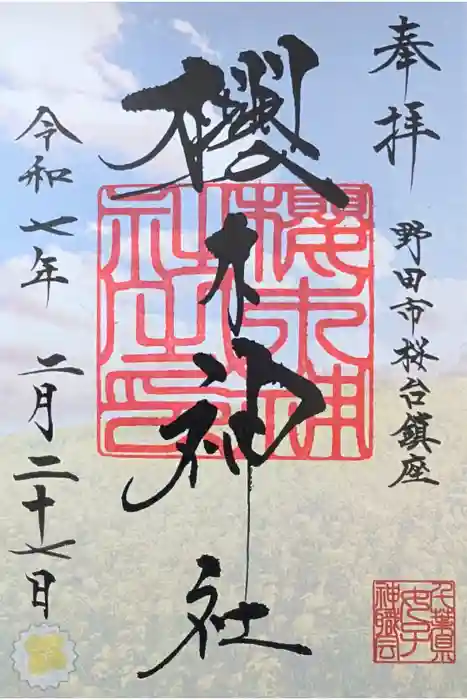 奉拝
野田市桜台鎮座
櫻木神社
令和七年
二月二十七日
千葉県
女子
神職会